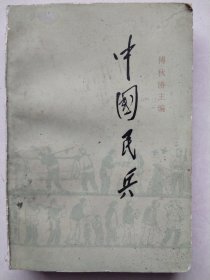 中國民兵
傅秋涛主编